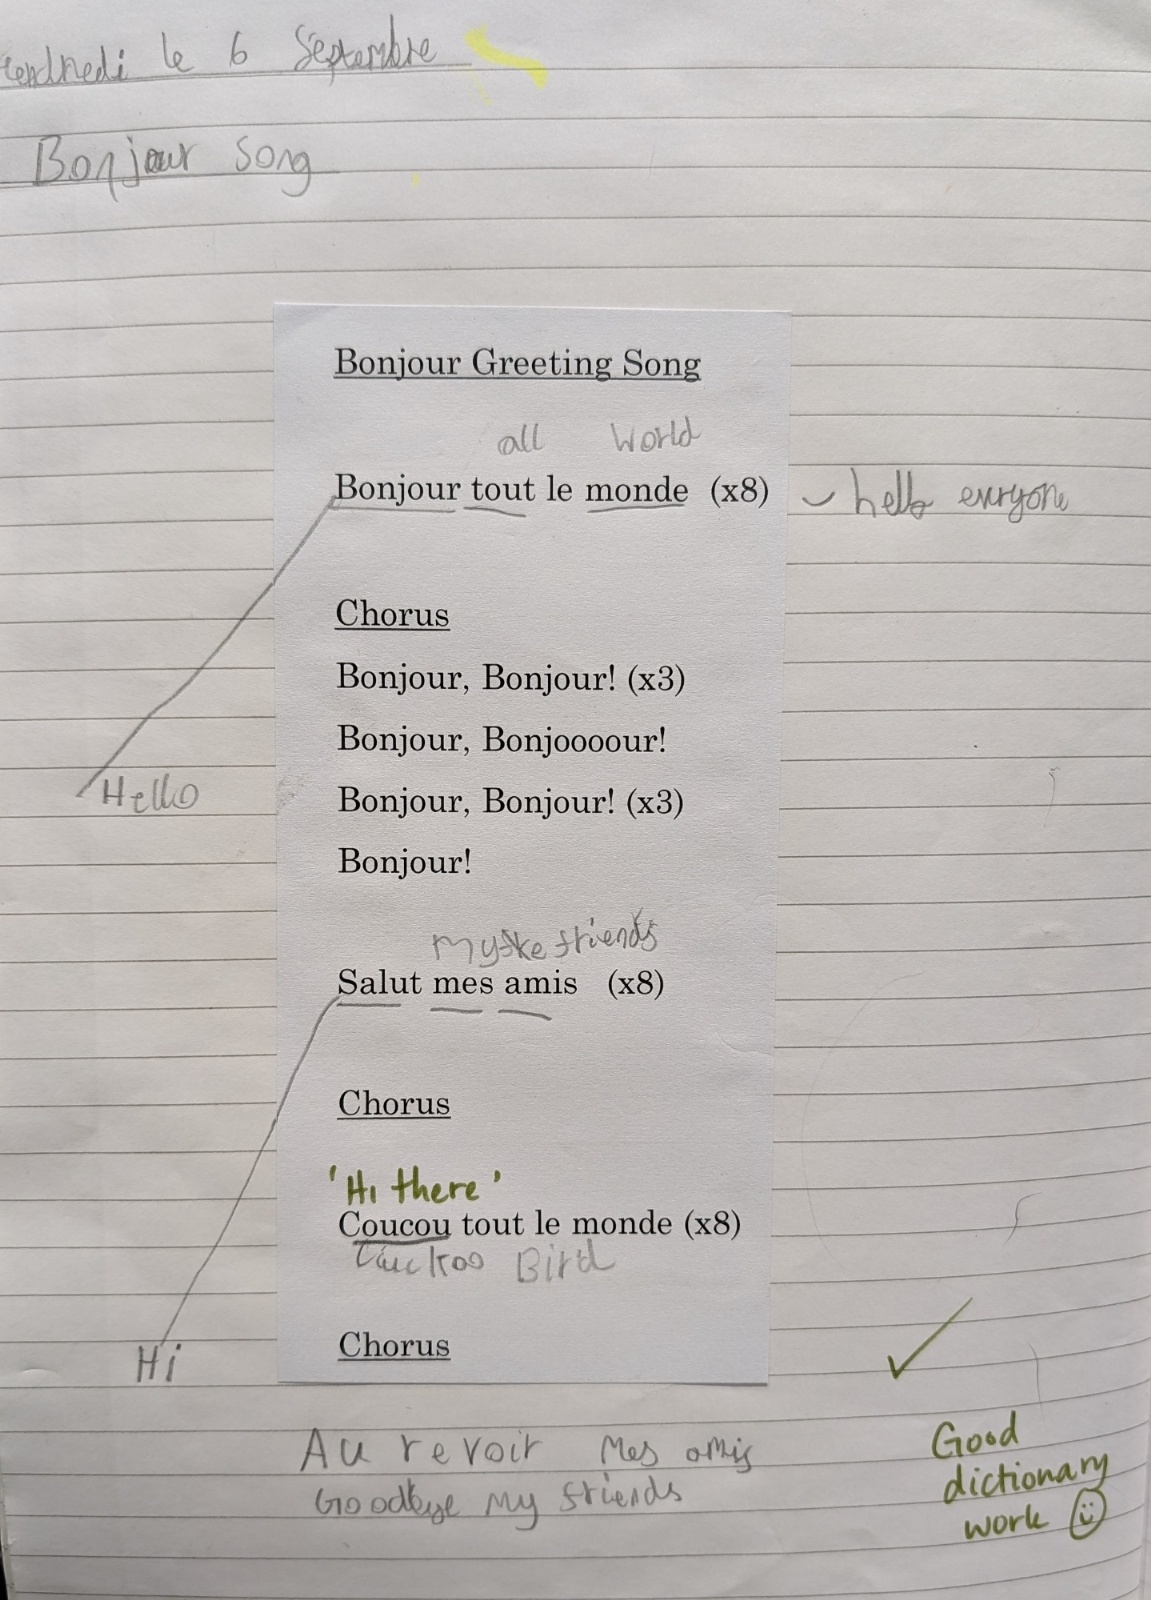 Vendredi le 6 Septembre
Bonjour song
Bonjour Greeting Song
all World
Bonjour tout le monde (x8) hello everyone
Chorus
Bonjour, Bonjour! (x3)
Bonjour, Bonjoooour!
Hello
Bonjour, Bonjour! (x3)
Bonjour!
My friends
Salut mes amis (x8)
Chorus
'Hi there'
Coucou tout le monde (x8)
Cuckoo Bird
Chorus
Hi
Au revoir Mes amis
Goodbye My friends
Good
dictionary
work